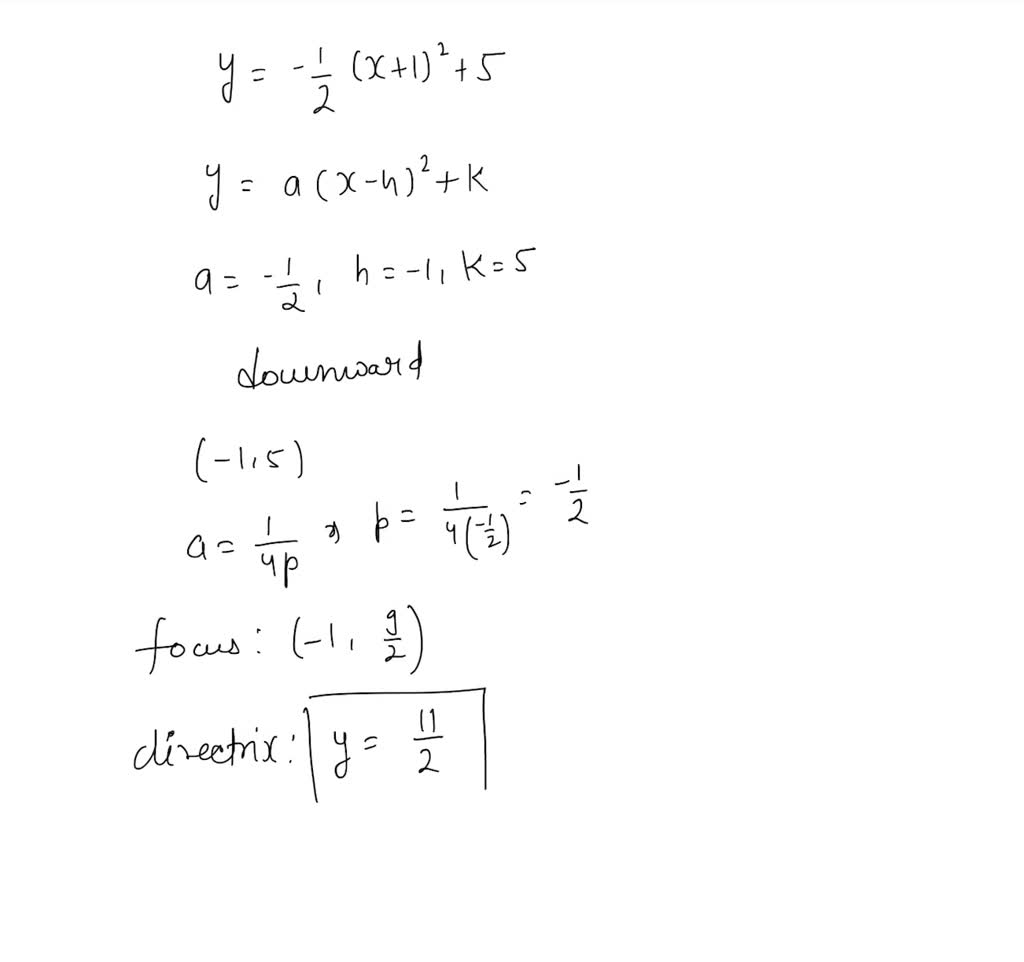 y = -1/2 (x+1)² + 5
y = a(x-h)² + k
a = -1/2, h = -1, k = 5
downward
(-1, 5)
a = 1/4p ⇒ p = 1/4(-1/2) = -1/2
focus: (-1, 9/2)
directrix: y = 11/2